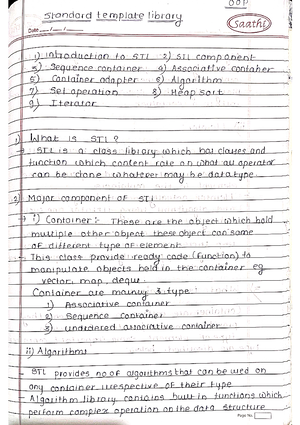 OOP
Standard template library
Saathi
Date
1) Introduction to STL 2) STL component
3) Sequence container 4) Associative container
5) Container adapter 6) Algorithm
7) Set operation 8) Heap sort
9) Iterator
1) What is STL?
→ STL is a class library which has classes and
function which content rate on what operator
can be done whatever may be datatype.
2) Major component of STL
→ i) Container :- These are the object which hold
multiple other object these object can same
of different type of element.
- This class provide ready code (function) to
manipulate objects held in the container eg
vector, map, deque.
Container are mainly 3 type
1) Associative container
2) Sequence container
3) unordered associative container
ii) Algorithms
- STL provides no of algorithms that can be used on
any container irrespective of their type
- Algorithm library contains built in functions which
perform complex operation on the data structure
Page No.